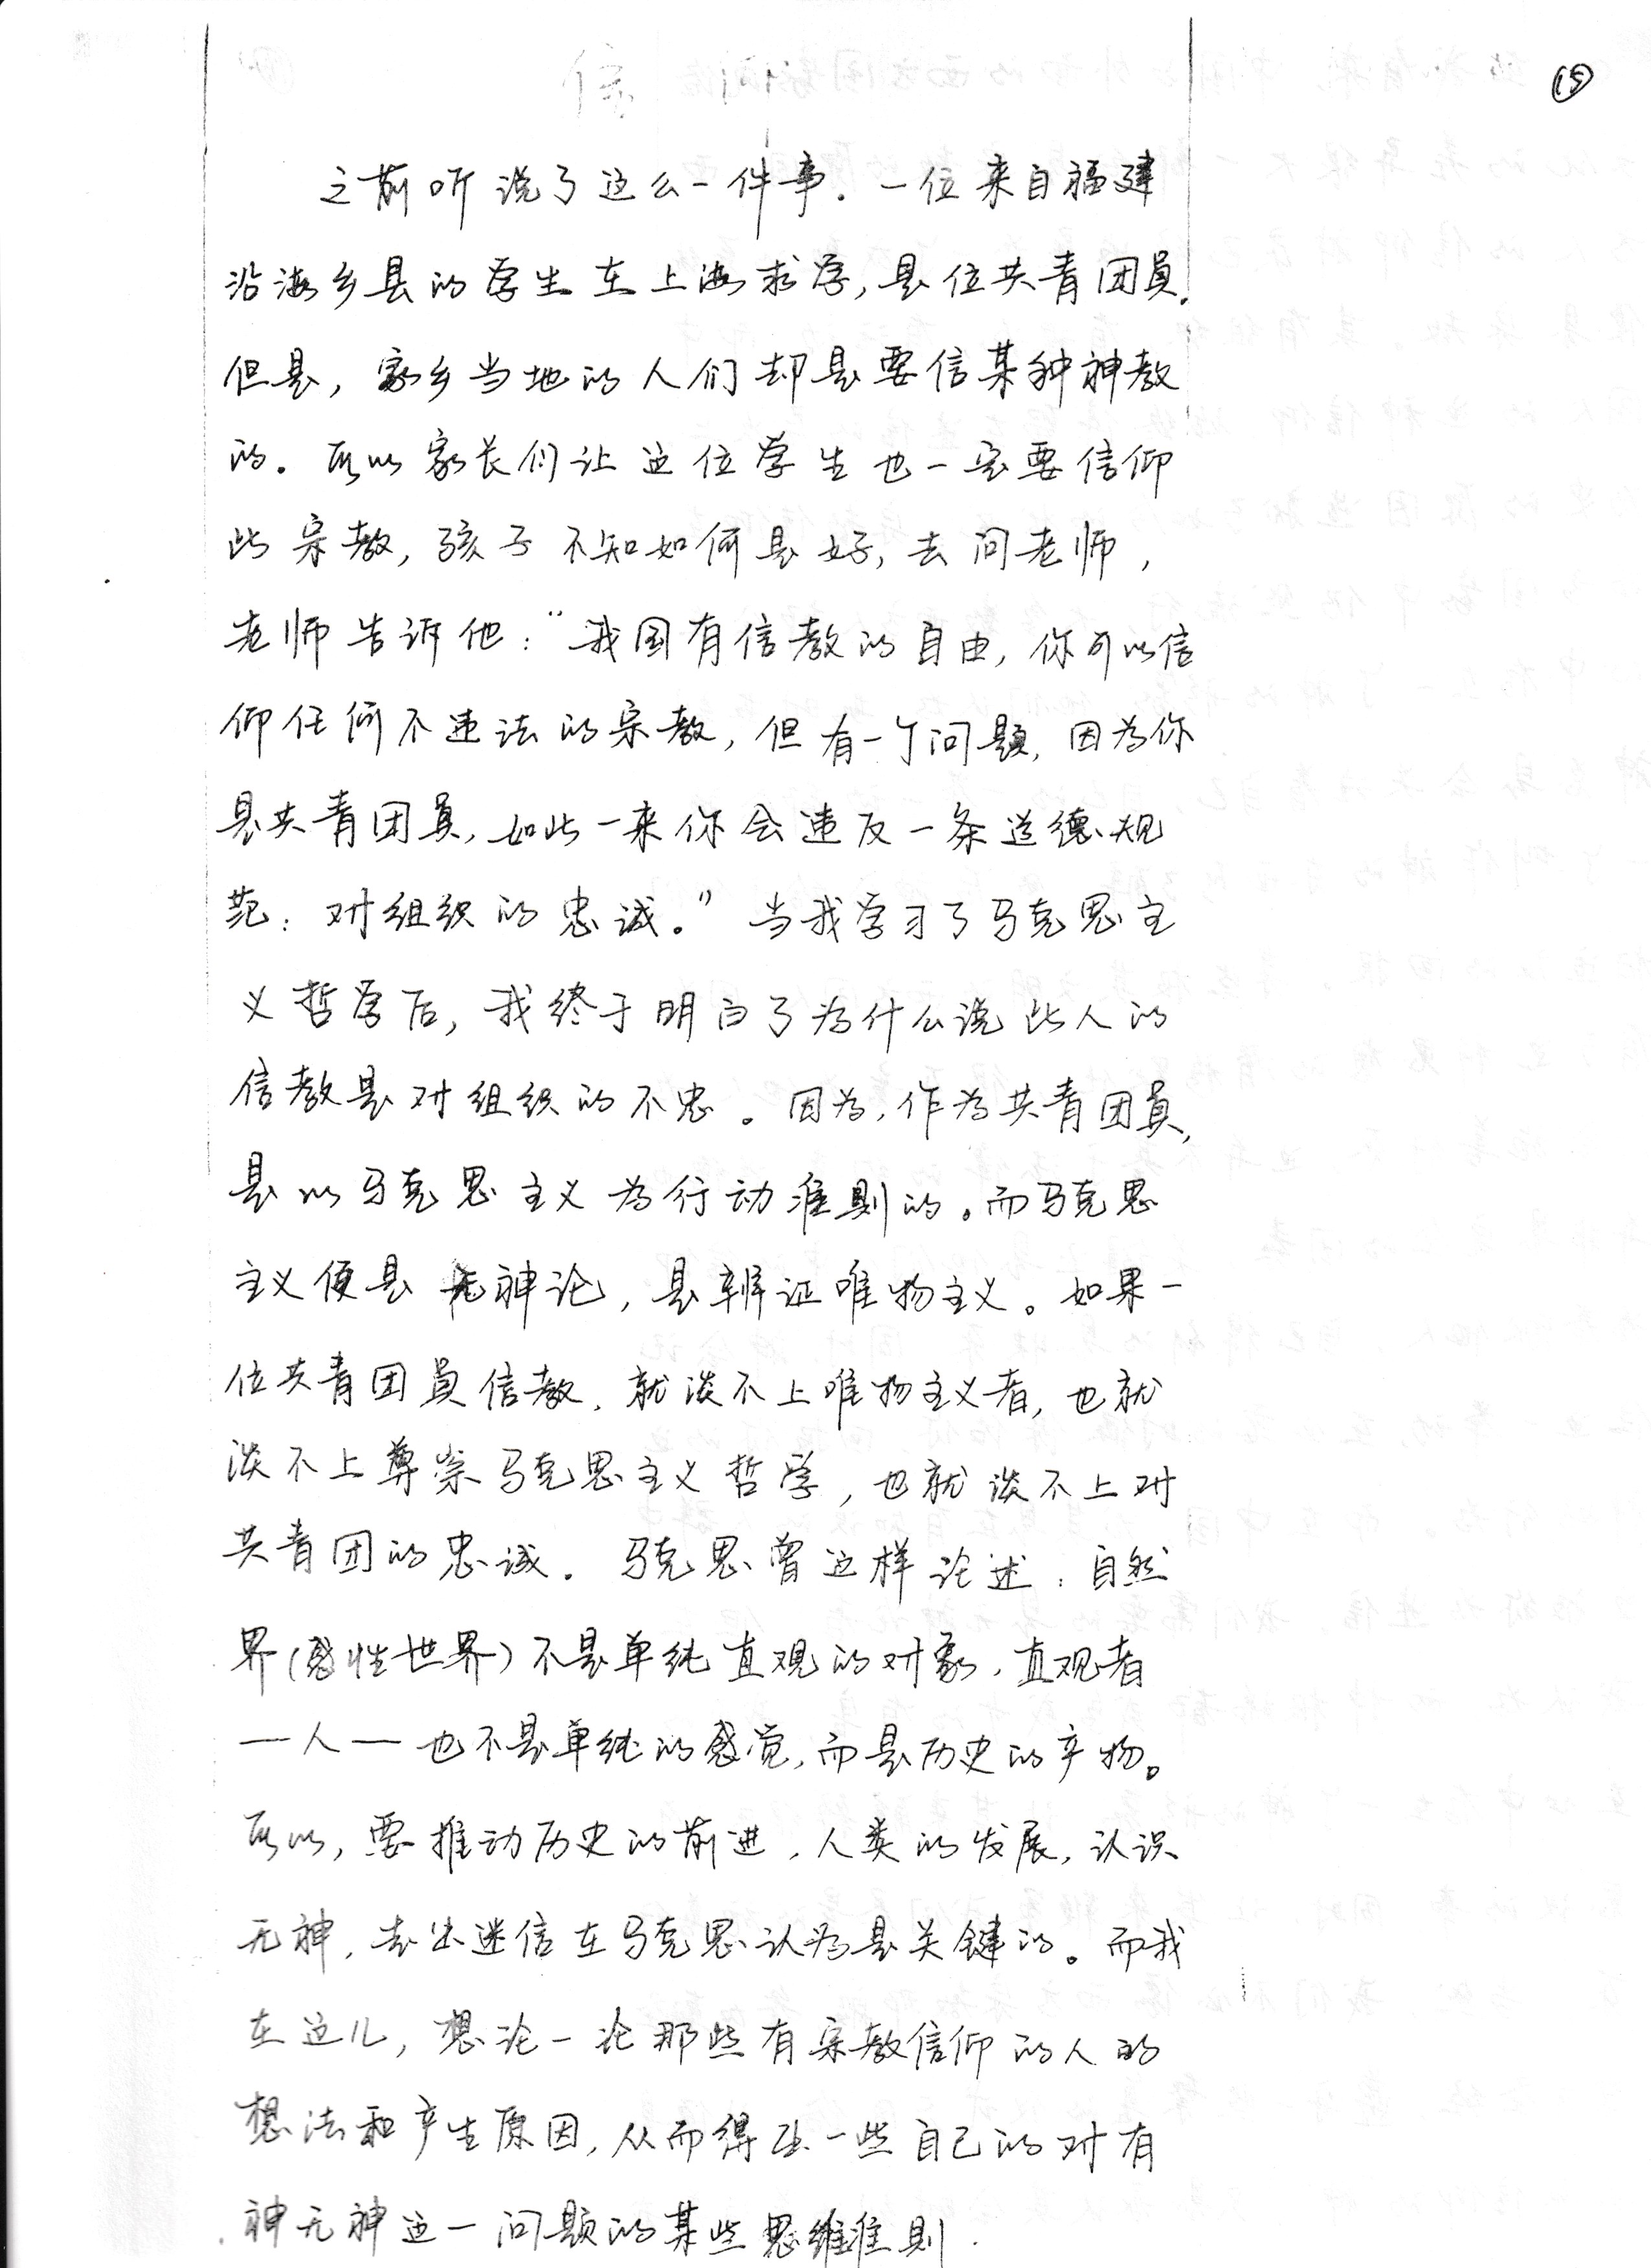 ⑮
之前听说了这么一件事. 一位来自福建
沿海乡县的学生在上海求学, 是位共青团员.
但是, 家乡当地的人们却是要信某种神教
的. 所以家长们让这位学生也一定要信仰
此宗教, 孩子不知如何是好, 去问老师,
老师告诉他: “我国有信教的自由, 你可以信
仰任何不违法的宗教, 但有一个问题, 因为你
是共青团员, 如此一来你会违反一条道德规
范: 对组织的忠诚。” 当我学习了马克思主
义哲学后, 我终于明白了为什么说此人的
信教是对组织的不忠。因为, 作为共青团员,
是以马克思主义为行动准则的。而马克思
主义便是无神论, 是辨证唯物主义。如果一
位共青团员信教, 就谈不上唯物主义者, 也就
谈不上尊崇马克思主义哲学, 也就谈不上对
共青团的忠诚. 马克思曾这样论述: 自然
界(感性世界)不是单纯直观的对象, 直观者
—人— 也不是单纯的感觉, 而是历史的产物。
所以, 要推动历史的前进, 人类的发展, 认识
无神, 去出迷信在马克思认为是关键的。而我
在这儿, 想论一论那些有宗教信仰的人的
想法和产生原因, 从而得出一些自己的对有
神无神这一问题的某些思维准则.